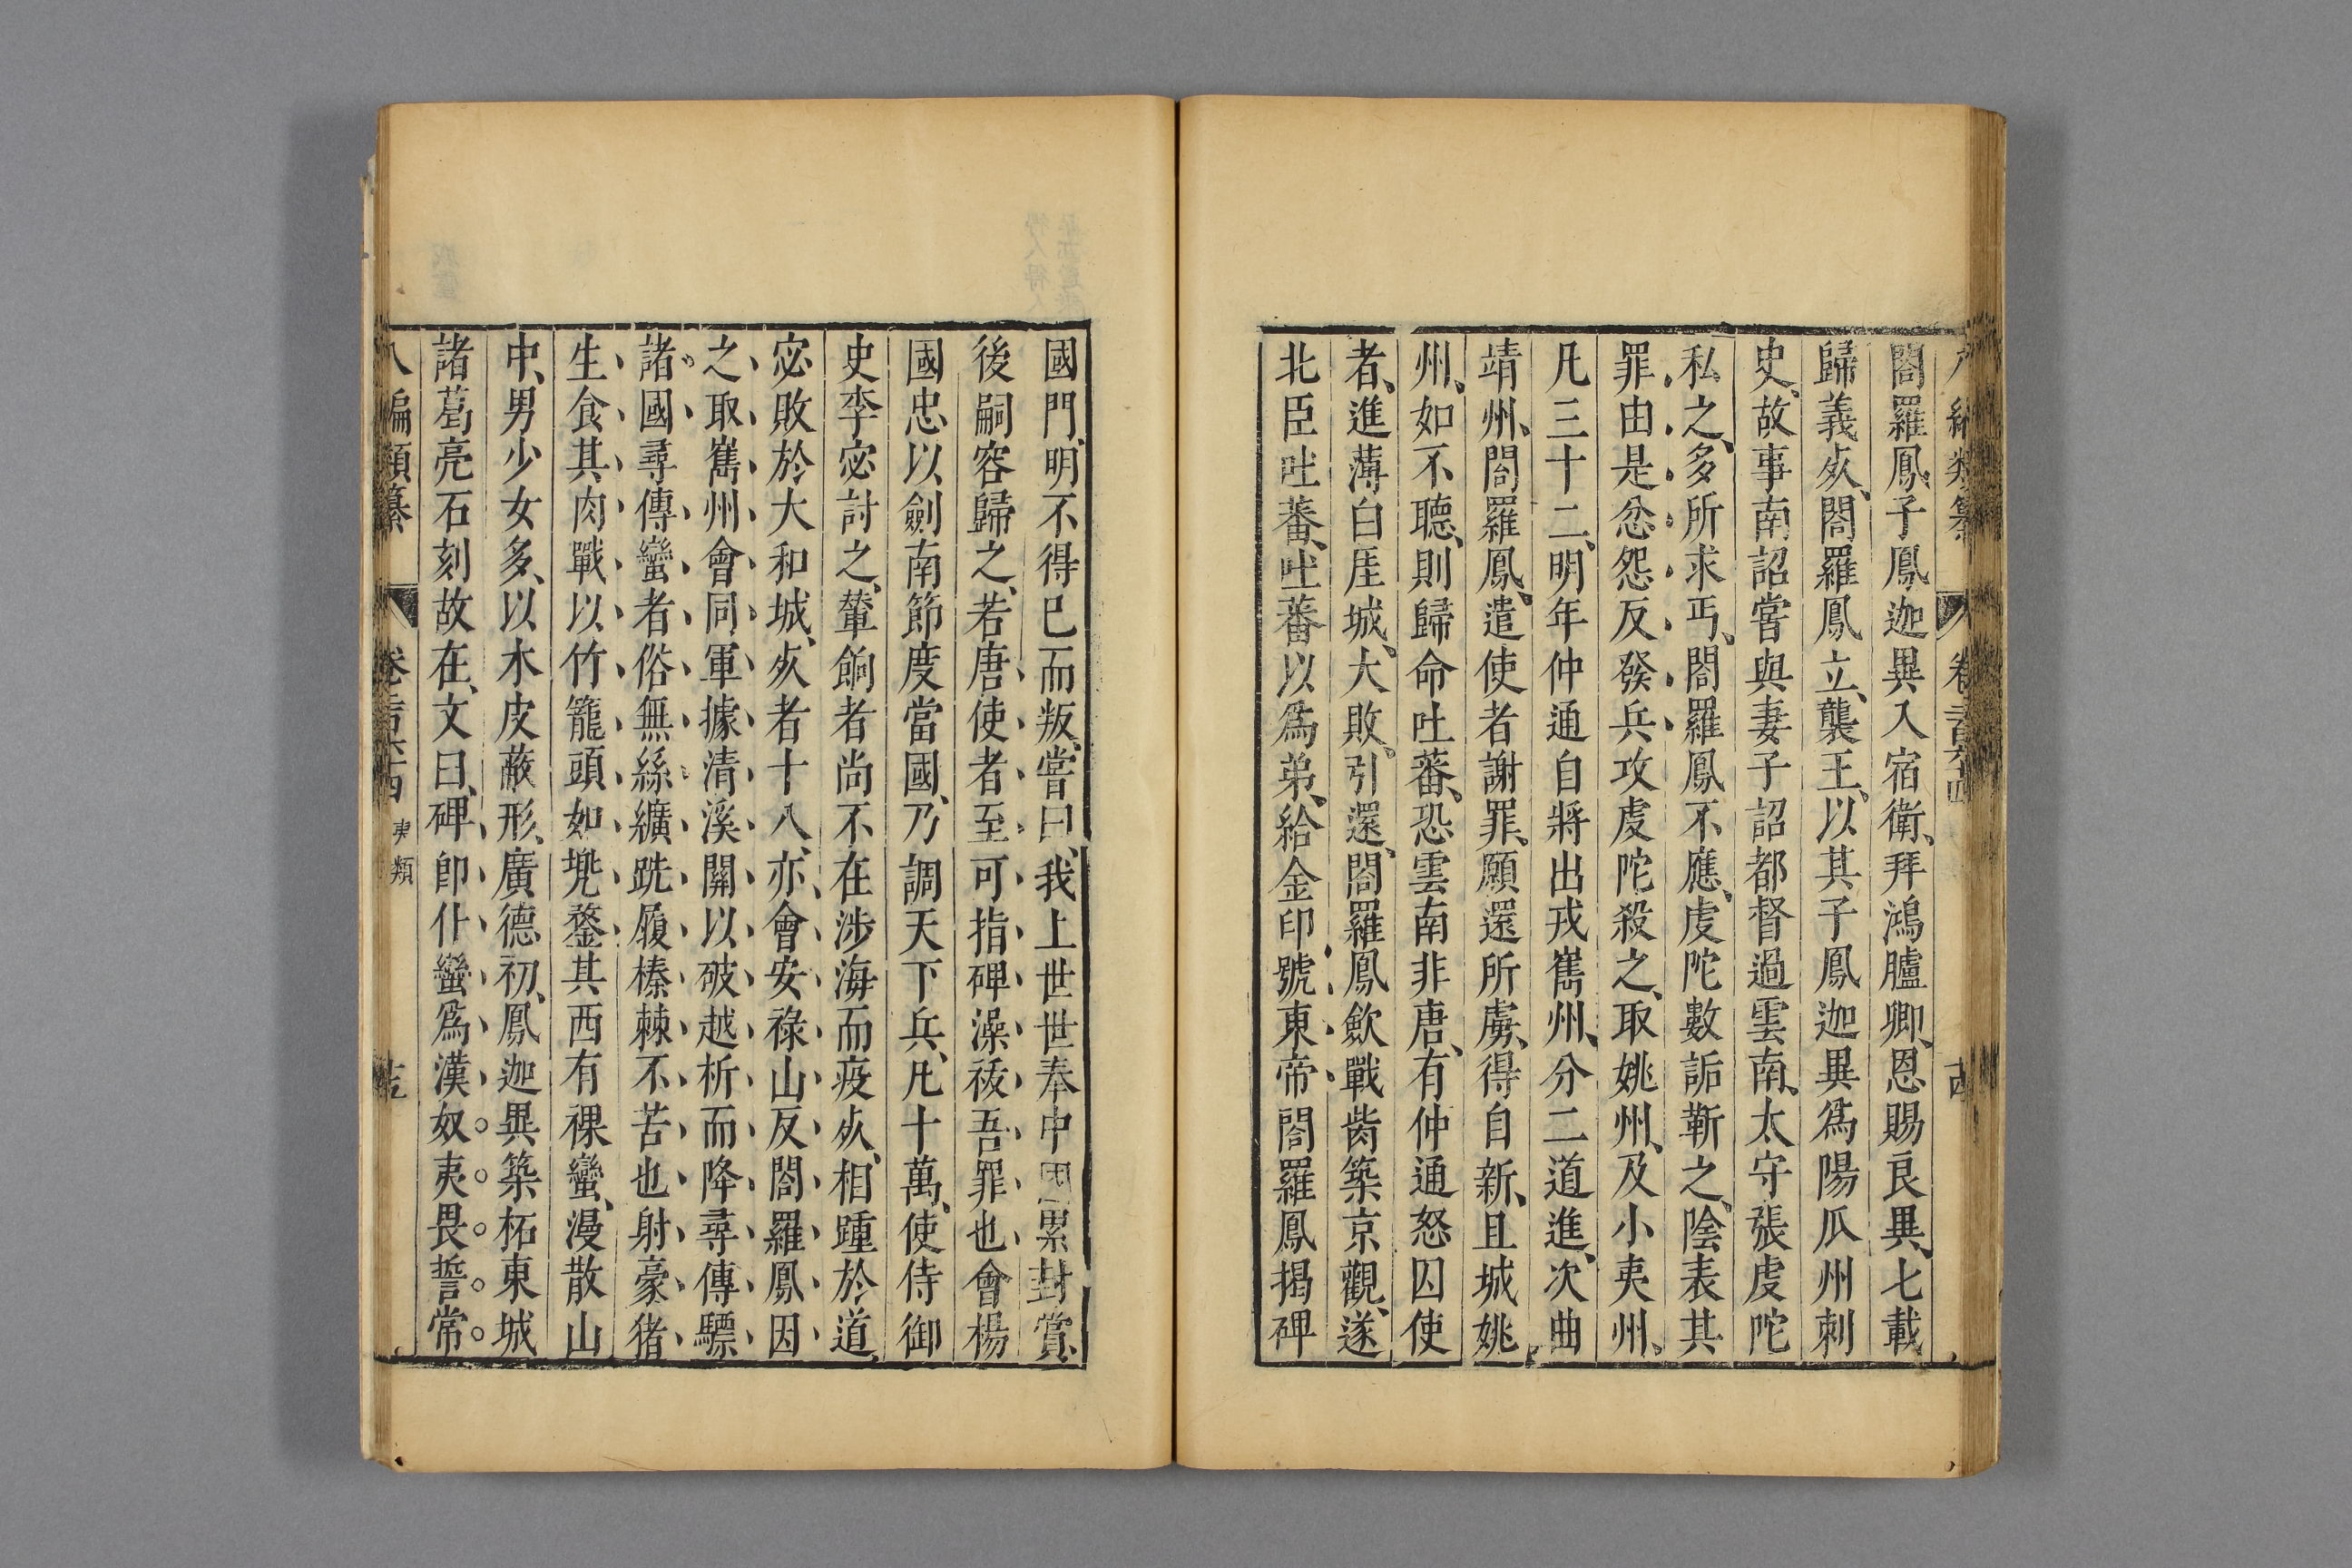 閤羅鳳子鳳迦異入宿衛、拜鴻臚卿、恩賜良異、七載
歸義死、閤羅鳳立、襲王、以其子鳳迦異爲陽瓜州刺
史、故事南詔嘗與妻子詔都督過雲南、太守張虔陀
私之、多所求丐、閤羅鳳不應、虔陀數詬靳之、陰表其
罪、由是忿怨反發兵攻虔陀殺之、取姚州、及小夷州、
凡三十二、明年仲通自將出戎巂州、分二道進、次曲
靖州、閤羅鳳、遣使者謝罪、願還所虜、得自新、且城姚
州、如不聽、則歸命吐蕃、恐雲南非唐、有仲通怒囚使
者、進薄白厓城、大敗、引還、閤羅鳳斂戰胔築京觀、遂
北臣吐蕃、吐蕃以爲弟、給金印、號東帝、閤羅鳳揭碑
國門、明不得已而叛、嘗曰、我上世世奉中國累封賞、
後嗣容歸之、若唐使者至可指碑澡祓吾罪也會楊
國忠以劍南節度當國、乃調天下兵、凡十萬、使侍御
史李宓討之、輦餉者尚不在涉海而疫死、相踵於道、
宓敗於大和城、死者十八、亦會安祿山反閤羅鳳因
之取巂州會同軍據清溪關以破越析而降尋傳驃
諸國尋傳蠻者俗無絲纊跣履榛棘不苦也射豪猪
生食其肉戰以竹籠頭如兠鍪其西有裸蠻、漫散山
中、男少女多、以木皮蔽形、廣德初、鳳迦異築柘東城
諸葛亮石刻故在、文曰、碑即仆蠻爲漢奴夷畏誓常
八編類纂 卷 夷類